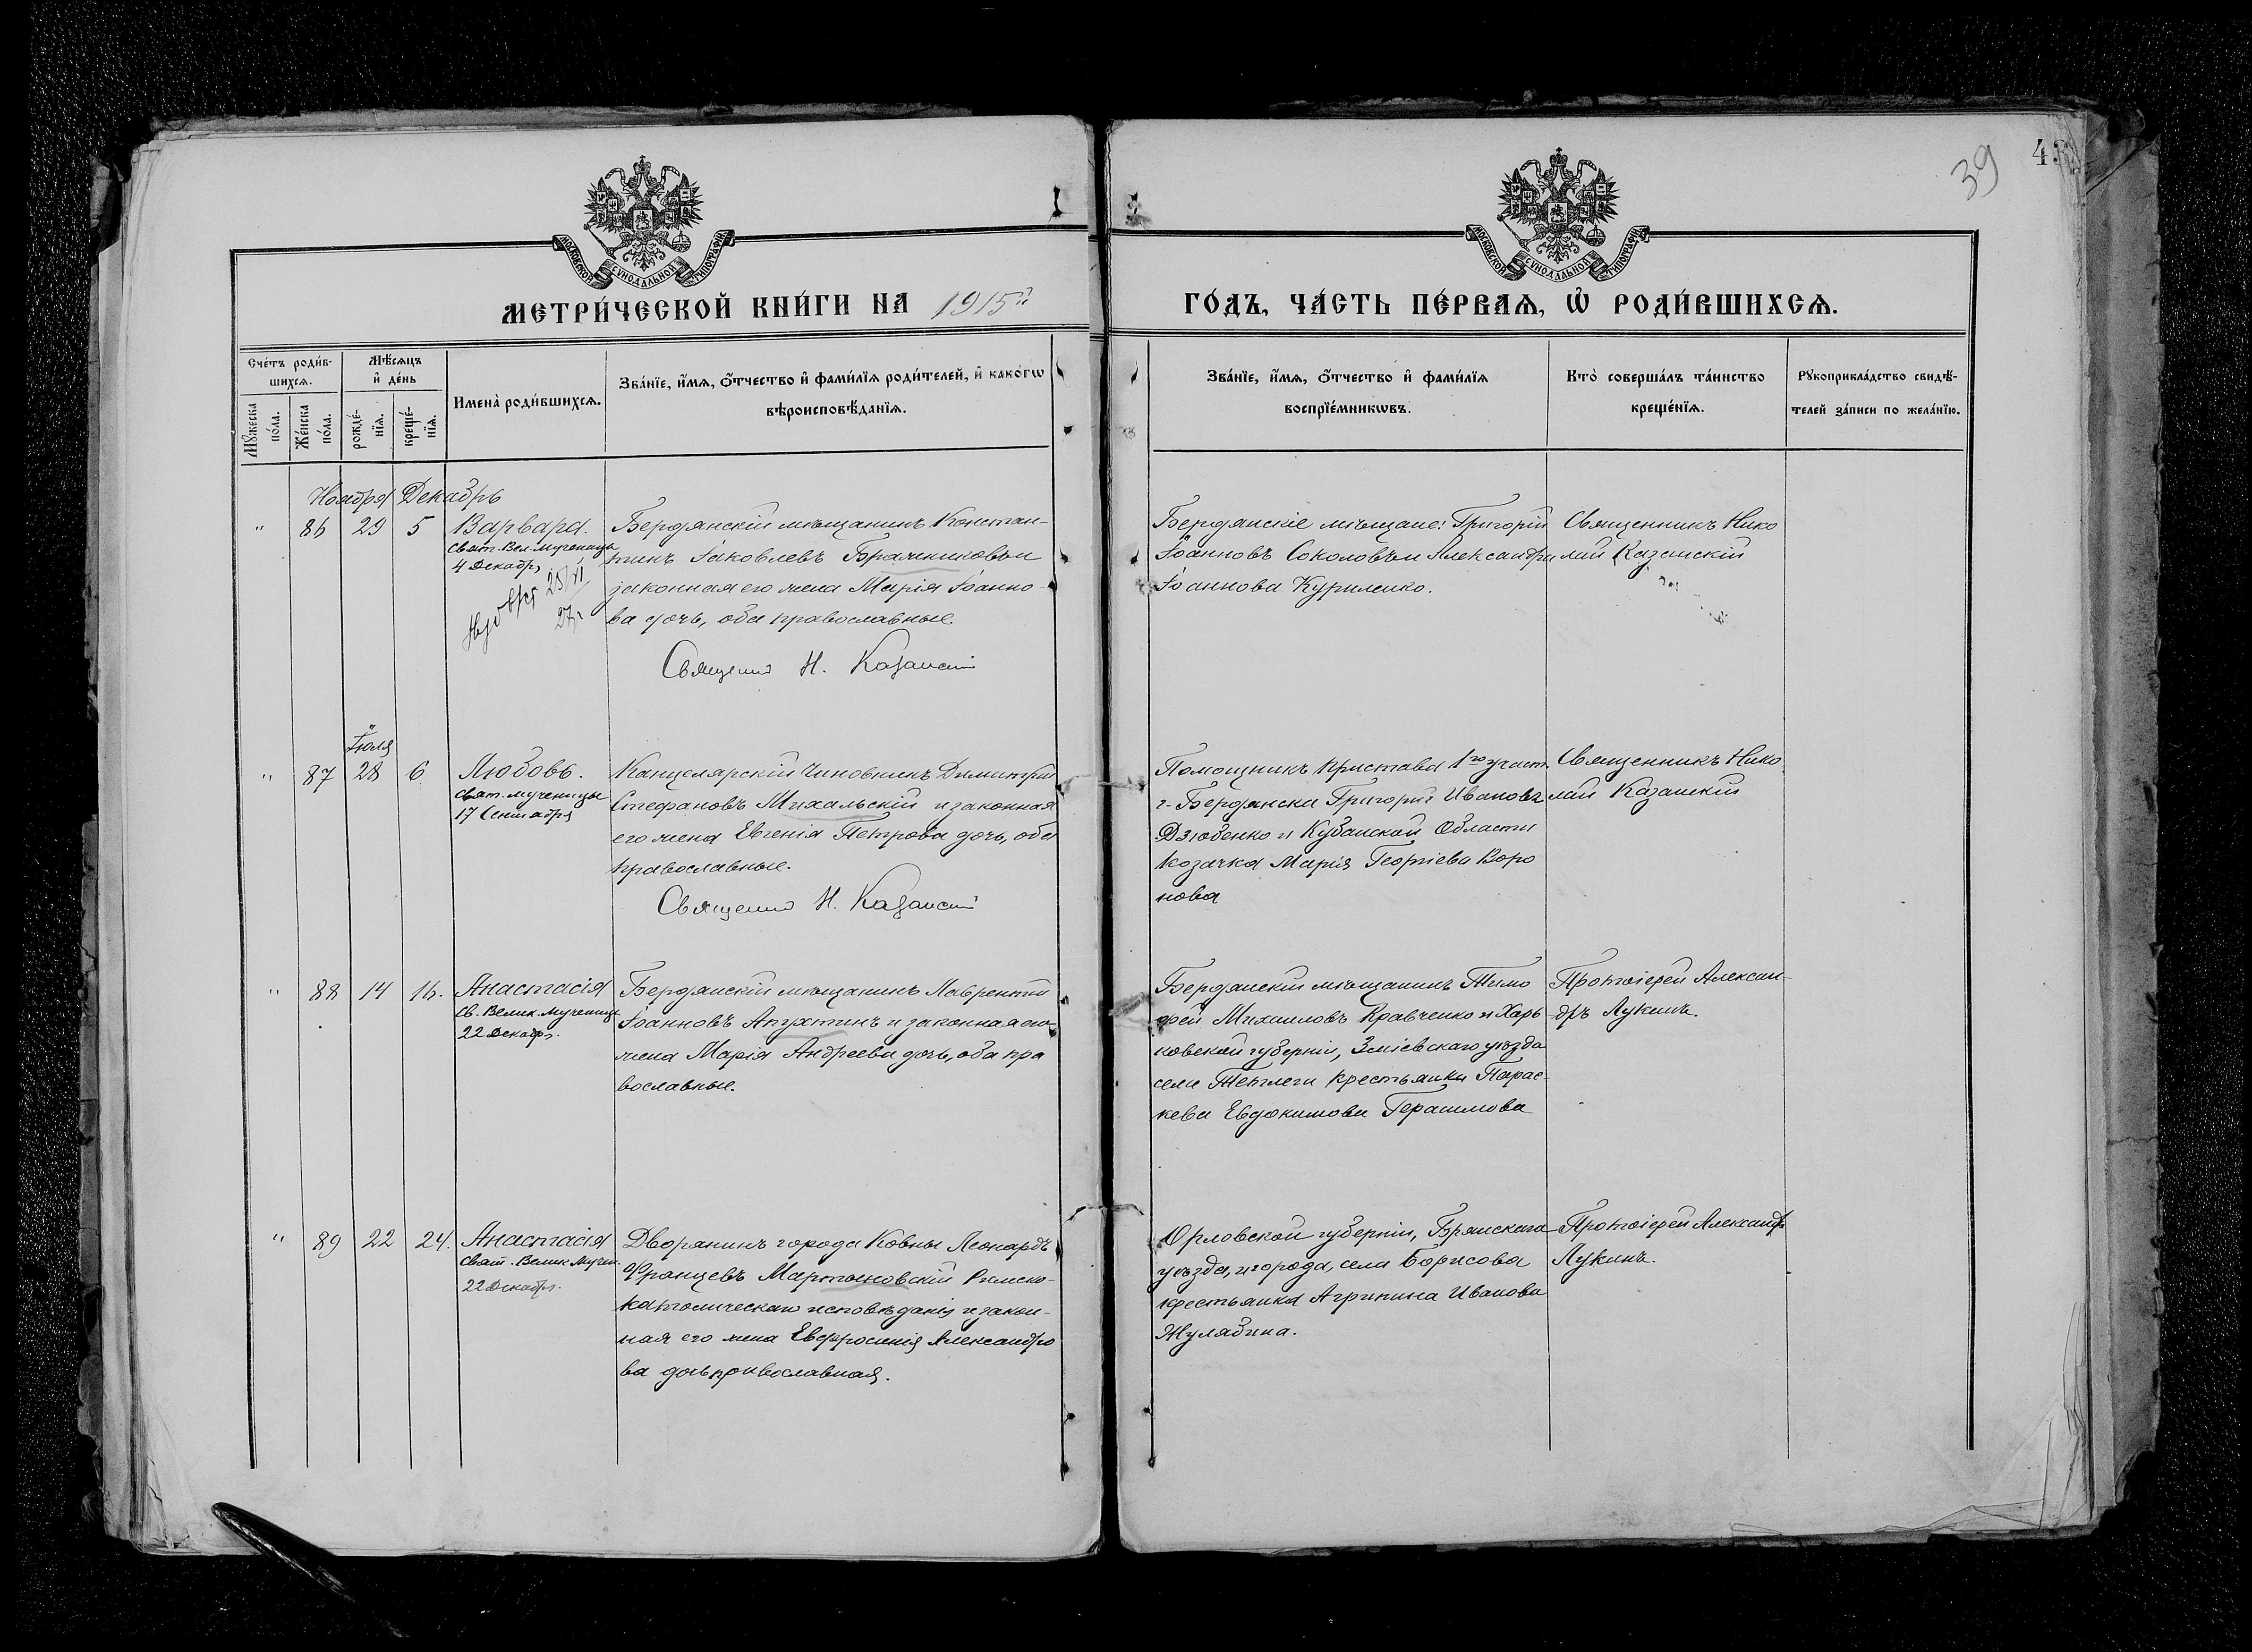 39
МОСКОВСКОЙ СѴНОДАЛЬНОЙ ТИПОГРАФІИ
МОСКОВСКОЙ СѴНОДАЛЬНОЙ ТИПОГРАФІИ
МЕТРИ́ЧЕСКОЙ КНИ́ГИ НА 1915й
ГО́ДЪ, ЧА́СТЬ ПЕ́РВАѦ, Ѽ РОДИ́ВШИХСѦ.
Сче́тъ роди́в-
шихсѧ.
Мѣ́сѧцъ
и҆ де́нь
Мꙋ́жеска
по́ла.
Же́нска
по́ла.
рожде́-
нїѧ.
креще́-
нїѧ.
Имена̀ роди́вшихсѧ.
Зва́нїе, и҆́мѧ, ѻ҆́тчество и҆ фами́лїѧ роди́телей, и҆ како́гѡ
вѣроисповѣ́данїѧ.
Зва́нїе, и҆́мѧ, ѻ҆́тчество и҆ фами́лїѧ
воспрїе́мникѡвъ.
Кто̀ соверша́лъ та́инство
креще́нїѧ.
Рꙋкоприкла́дство свидѣ́-
телей за́писи по жела́нїю.
Ноября Декабрь
" 86 29 5 Варвара.
Свят. Вел. Мученицы
4 Декабр,
Бердянскій мѣщанинъ Констан-
тинъ Іаковлевъ
законная его жена Марія Іоанно-
ва дочь, оба православные.
Священник Н. Казанскій
Бердянскіе мѣщане: Григорій
Іоанновъ Соколовъ и Александра
Іоаннова Куриленко.
Священникъ Нико
лай Казанскій
Іюля
" 87 28 6 Любовь.
Свят. мученицы
17 Сентября
Канцелярскій Чиновникъ Димитрій
Стефановъ Михальскій и законная
его жена Евгенія Петрова дочь, оба
православные.
Священник Н. Казанскій
Помощникъ Пристава 1го участ.
г. Бердянска Григорій Ивановъ
Дзюбенко и Кубанской Области
козачка Марія Георгіева Воро
нова
Священникъ Нико
лай Казанскій
" 88 14 16. Анастасія
Св. Велик. Мученицы
22 Декабр.
Бердянскій мѣщанинъ Лаврентій
Іоанновъ Апухтинъ и законная его
жена Марія Андреева дочь, оба пра
вославные.
Бердянскій мѣщанинъ Тимо
фей Михаиловъ Кравченко и Харь
ковской губерніи, Зміевскаго уѣзда
села Тетлеги крестьянка Парас-
кева Евдокимова Герасимова
Протоіерей Алексан-
дръ Лукинъ.
" 89 22 24. Анастасія
Свят. Велик. Мучен.
22 Декабр.
Дворянинъ города Ковны Леонардъ
Францевъ Мартыновскій Римско-
католическаго исповѣданія и закон-
ная его жена Евфросинія Александро
ва дочь православная.
Орловской губерніи, Брянскаго
уѣзда, и города, села Борисова
крестьянка Агрипина Иванова
Жулябина.
Протоіерей Александр
Лукинъ.